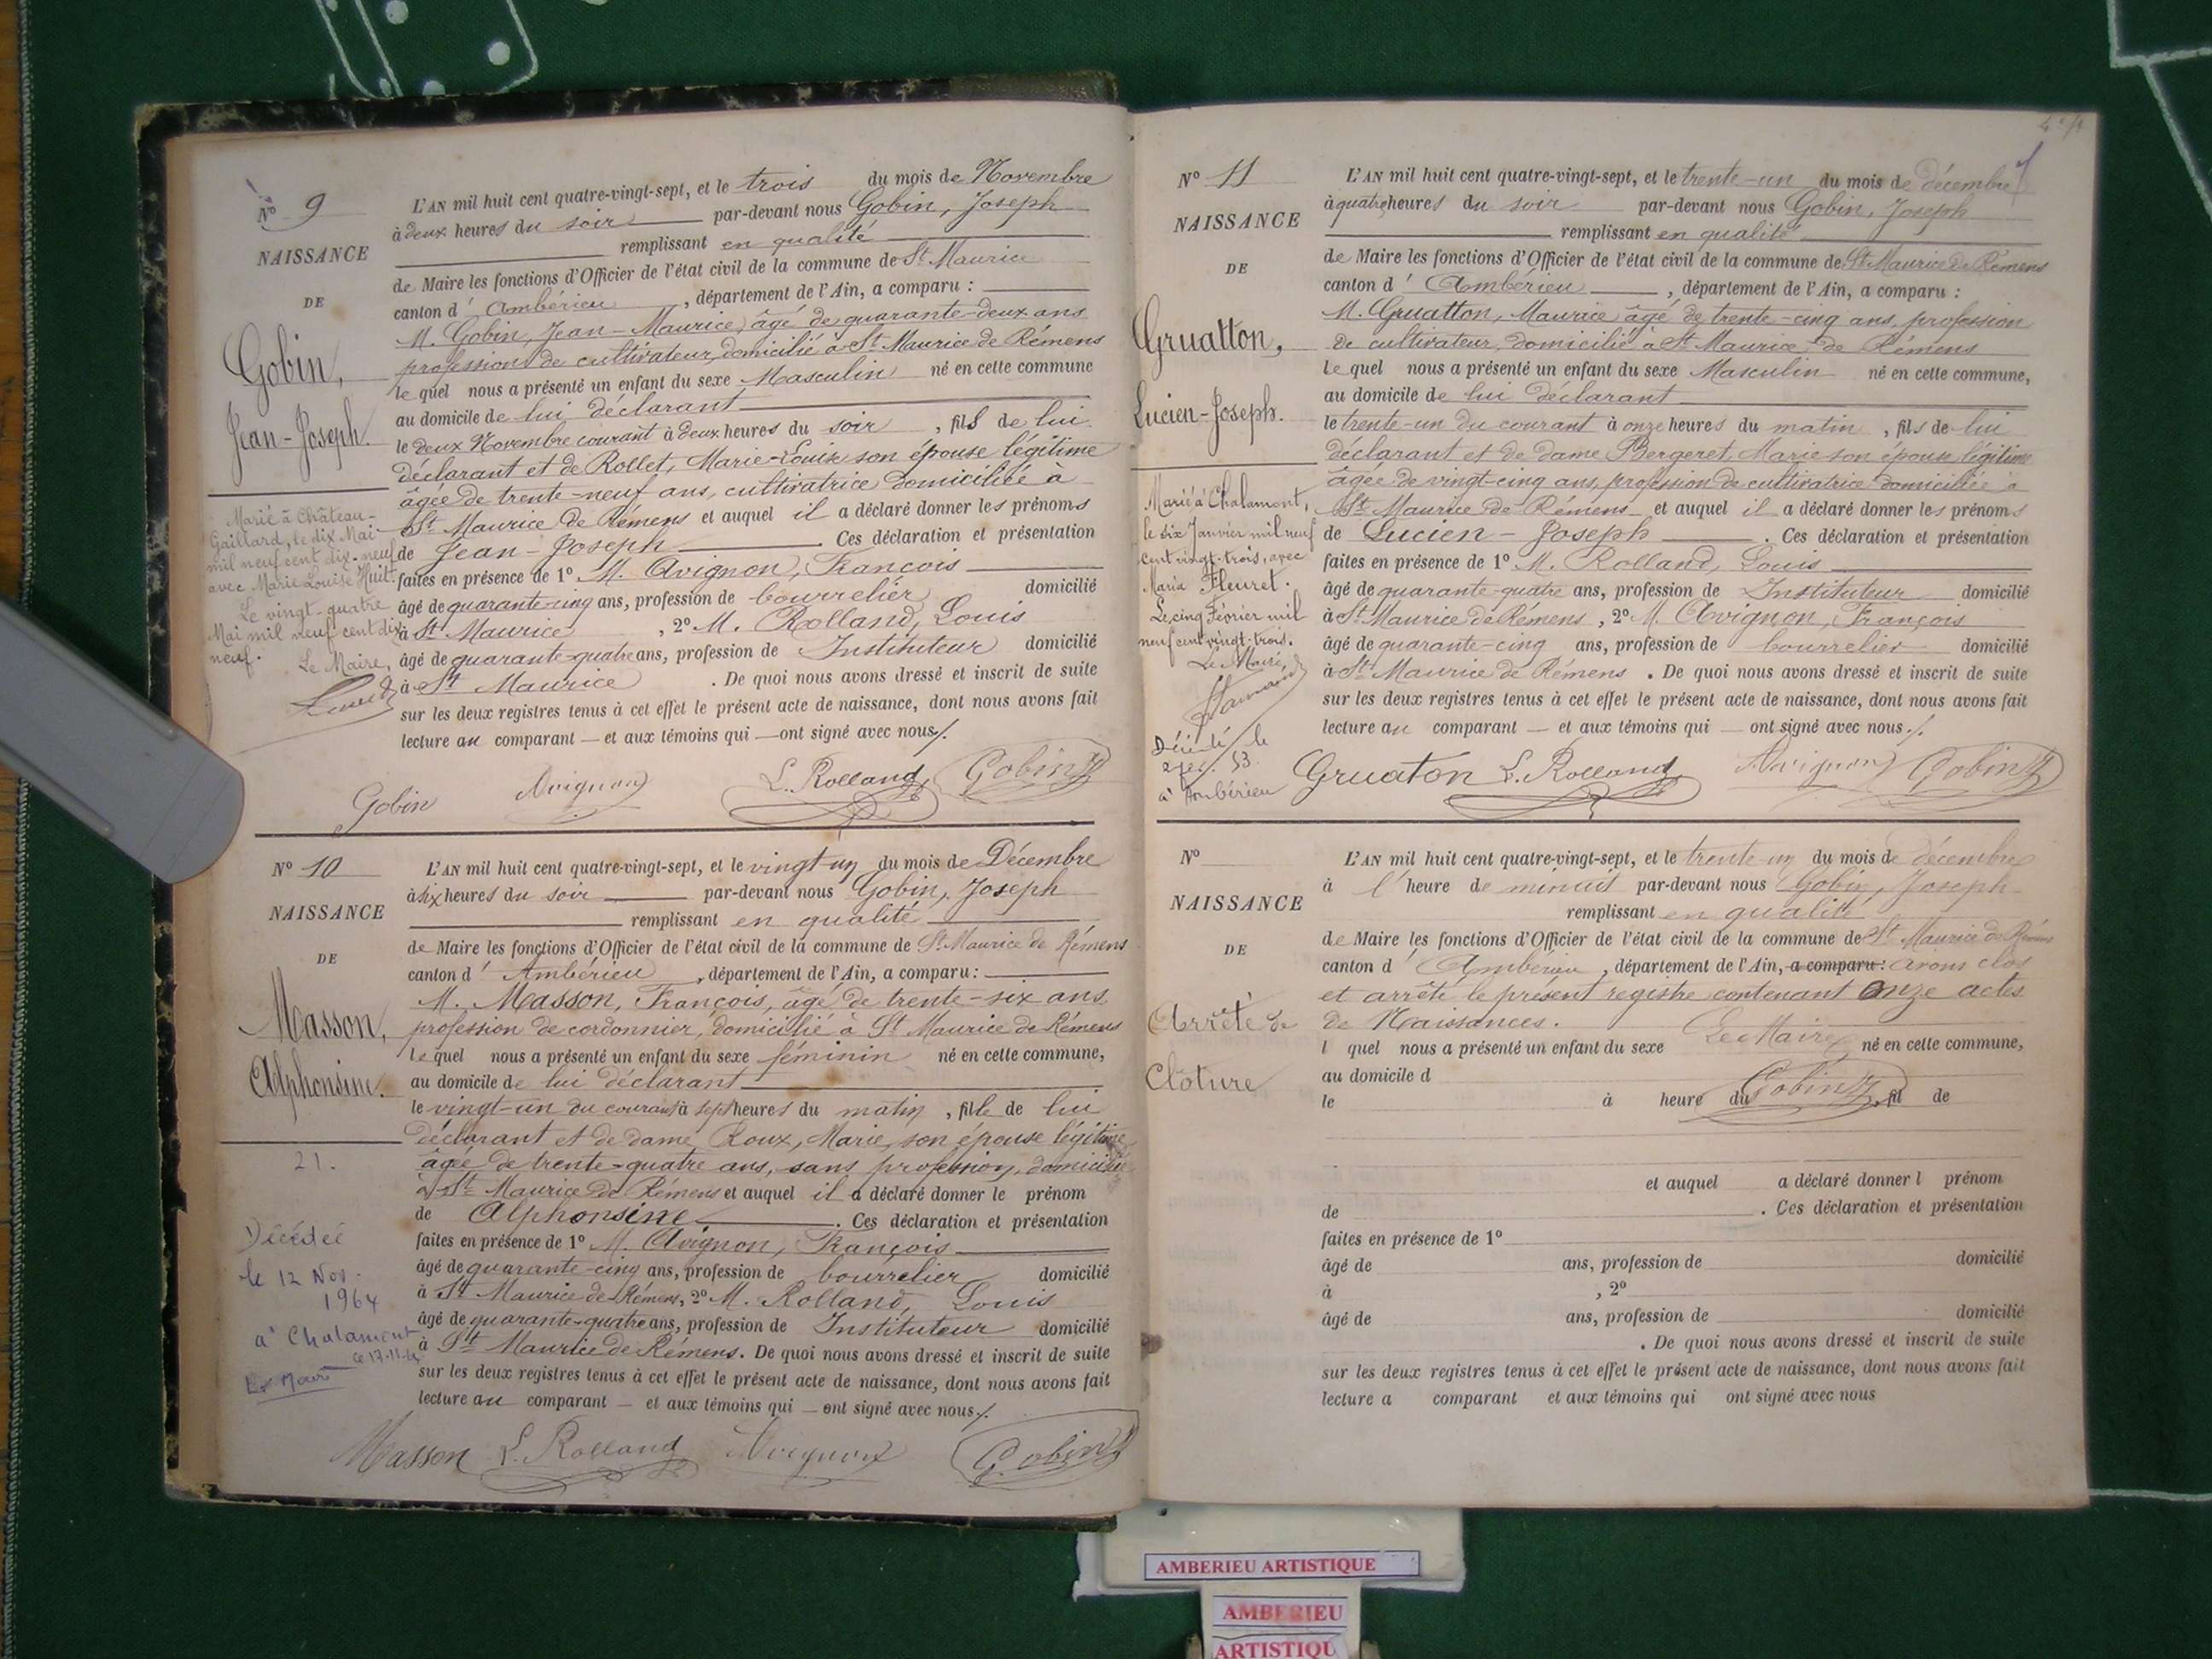 Nº 9
NAISSANCE
DE
Gobin,
Jean-Joseph.
Marié à Château-
Gaillard, le dix Mai
mil neuf cent dix-neuf
avec Marie Louise Huit.
Le vingt-quatre
Mai mil neuf cent dix
neuf.
Le Maire,
L'AN mil huit cent quatre-vingt-sept, et le trois du mois de Novembre
à deux heures du soir par-devant nous Gobin, Joseph
remplissant en qualité
de Maire les fonctions d'Officier de l'état civil de la commune de St Maurice
canton d'Ambérieu, département de l'Ain, a comparu :
M. Gobin, Jean-Maurice, âgé de quarante-deux ans
profession de cultivateur, domicilié à St Maurice de Rémens
lequel nous a présenté un enfant du sexe Masculin né en cette commune
au domicile de lui déclarant
le deux Novembre courant à deux heures du soir, fils de lui
déclarant et de Rollet, Marie-Louise son épouse légitime
âgée de trente-neuf ans, cultivatrice domiciliée à
St Maurice de Rémens et auquel il a déclaré donner les prénoms
de Jean-Joseph. Ces déclaration et présentation
faites en présence de 1º M. Avignon, François
âgé de quarante-cinq ans, profession de bourrelier domicilié
à St Maurice, 2º M. Rolland, Louis
âgé de quarante-quatre ans, profession de Instituteur domicilié
à St Maurice. De quoi nous avons dressé et inscrit de suite
sur les deux registres tenus à cet effet le présent acte de naissance, dont nous avons fait
lecture au comparant — et aux témoins qui — ont signé avec nous./.
Gobin Avignon L. Rolland Gobin
Nº 10
NAISSANCE
DE
Masson,
Alphonsine.
21.
Décédée
le 12 Nov.
1964
à Chalamont
L'AN mil huit cent quatre-vingt-sept, et le vingt-un du mois de Décembre
à six heures du soir par-devant nous Gobin, Joseph
remplissant en qualité
de Maire les fonctions d'Officier de l'état civil de la commune de St Maurice de Rémens
canton d'Ambérieu, département de l'Ain, a comparu :
M. Masson, François, âgé de trente-six ans
profession de cordonnier, domicilié à St Maurice de Rémens
lequel nous a présenté un enfant du sexe féminin né en cette commune,
au domicile de lui déclarant
le vingt-un du courant à sept heures du matin, fille de lui
déclarant et de dame Roux, Marie, son épouse légitime
âgée de trente-quatre ans, sans profession, domiciliée
à St Maurice de Rémens et auquel il a déclaré donner le prénom
de Alphonsine. Ces déclaration et présentation
faites en présence de 1º M. Avignon, François
âgé de quarante-cinq ans, profession de bourrelier domicilié
à St Maurice de Rémens, 2º M. Rolland, Louis
âgé de quarante-quatre ans, profession de Instituteur domicilié
à St Maurice de Rémens. De quoi nous avons dressé et inscrit de suite
sur les deux registres tenus à cet effet le présent acte de naissance, dont nous avons fait
lecture au comparant — et aux témoins qui — ont signé avec nous./.
Masson L. Rolland Avignon Gobin
Nº 11
NAISSANCE
DE
Gruatton,
Lucien-Joseph.
Marié à Chalamont,
le six Janvier mil neuf
cent vingt-trois, avec
Maria Fleuret.
Le cinq Février mil
neuf cent vingt-trois.
Le Maire,
Décédé le
à Ambérieu
L'AN mil huit cent quatre-vingt-sept, et le trente-un du mois de décembre
à quatre heures du soir par-devant nous Gobin, Joseph
remplissant en qualité
de Maire les fonctions d'Officier de l'état civil de la commune de St Maurice de Rémens
canton d'Ambérieu, département de l'Ain, a comparu :
M. Gruatton, Maurice âgé de trente-cinq ans, profession
de cultivateur, domicilié à St Maurice de Rémens
lequel nous a présenté un enfant du sexe Masculin né en cette commune,
au domicile de lui déclarant
le trente-un du courant à onze heures du matin, fils de lui
déclarant et de dame Bergeret, Marie son épouse légitime
âgée de vingt-cinq ans, profession de cultivatrice domiciliée à
St Maurice de Rémens et auquel il a déclaré donner les prénoms
de Lucien-Joseph. Ces déclaration et présentation
faites en présence de 1º M. Rolland, Louis
âgé de quarante-quatre ans, profession de Instituteur domicilié
à St Maurice de Rémens, 2º M. Avignon, François
âgé de quarante-cinq ans, profession de bourrelier domicilié
à St Maurice de Rémens. De quoi nous avons dressé et inscrit de suite
sur les deux registres tenus à cet effet le présent acte de naissance, dont nous avons fait
lecture au comparant — et aux témoins qui — ont signé avec nous./.
Gruaton L. Rolland Avignon Gobin
Nº
NAISSANCE
DE
Arrêté de
Clôture
L'AN mil huit cent quatre-vingt-sept, et le trente-un du mois de décembre
à l'heure de minuit par-devant nous Gobin, Joseph
remplissant en qualité
de Maire les fonctions d'Officier de l'état civil de la commune de St Maurice de Rémens
canton d'Ambérieu, département de l'Ain, a comparu : avons clos
et arrêté le présent registre contenant onze actes
de Naissances.
Le Maire
l quel nous a présenté un enfant du sexe né en cette commune,
au domicile d
Gobin
le à heure du , fil de
et auquel a déclaré donner l prénom
de . Ces déclaration et présentation
faites en présence de 1º
âgé de ans, profession de domicilié
à , 2º
âgé de ans, profession de domicilié
. De quoi nous avons dressé et inscrit de suite
sur les deux registres tenus à cet effet le présent acte de naissance, dont nous avons fait
lecture a comparant et aux témoins qui ont signé avec nous
AMBERIEU ARTISTIQUE
AMBERIEU
ARTISTIQU